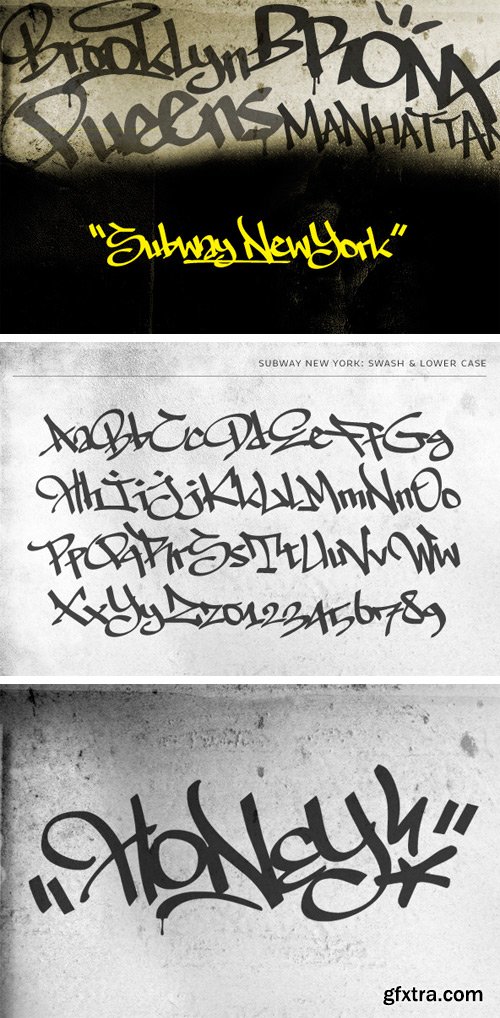 Brooklyn BRONX
Queens MANHATTAN
"Subway New York"
SUBWAY NEW YORK: SWASH & LOWER CASE
AaBbCcDdEeFfGg
HhIiJjKkLlMmNnOo
PpQqRrSsTtUuVvWw
XxYyZz0123456789
"HONEY"
gfxtra.com